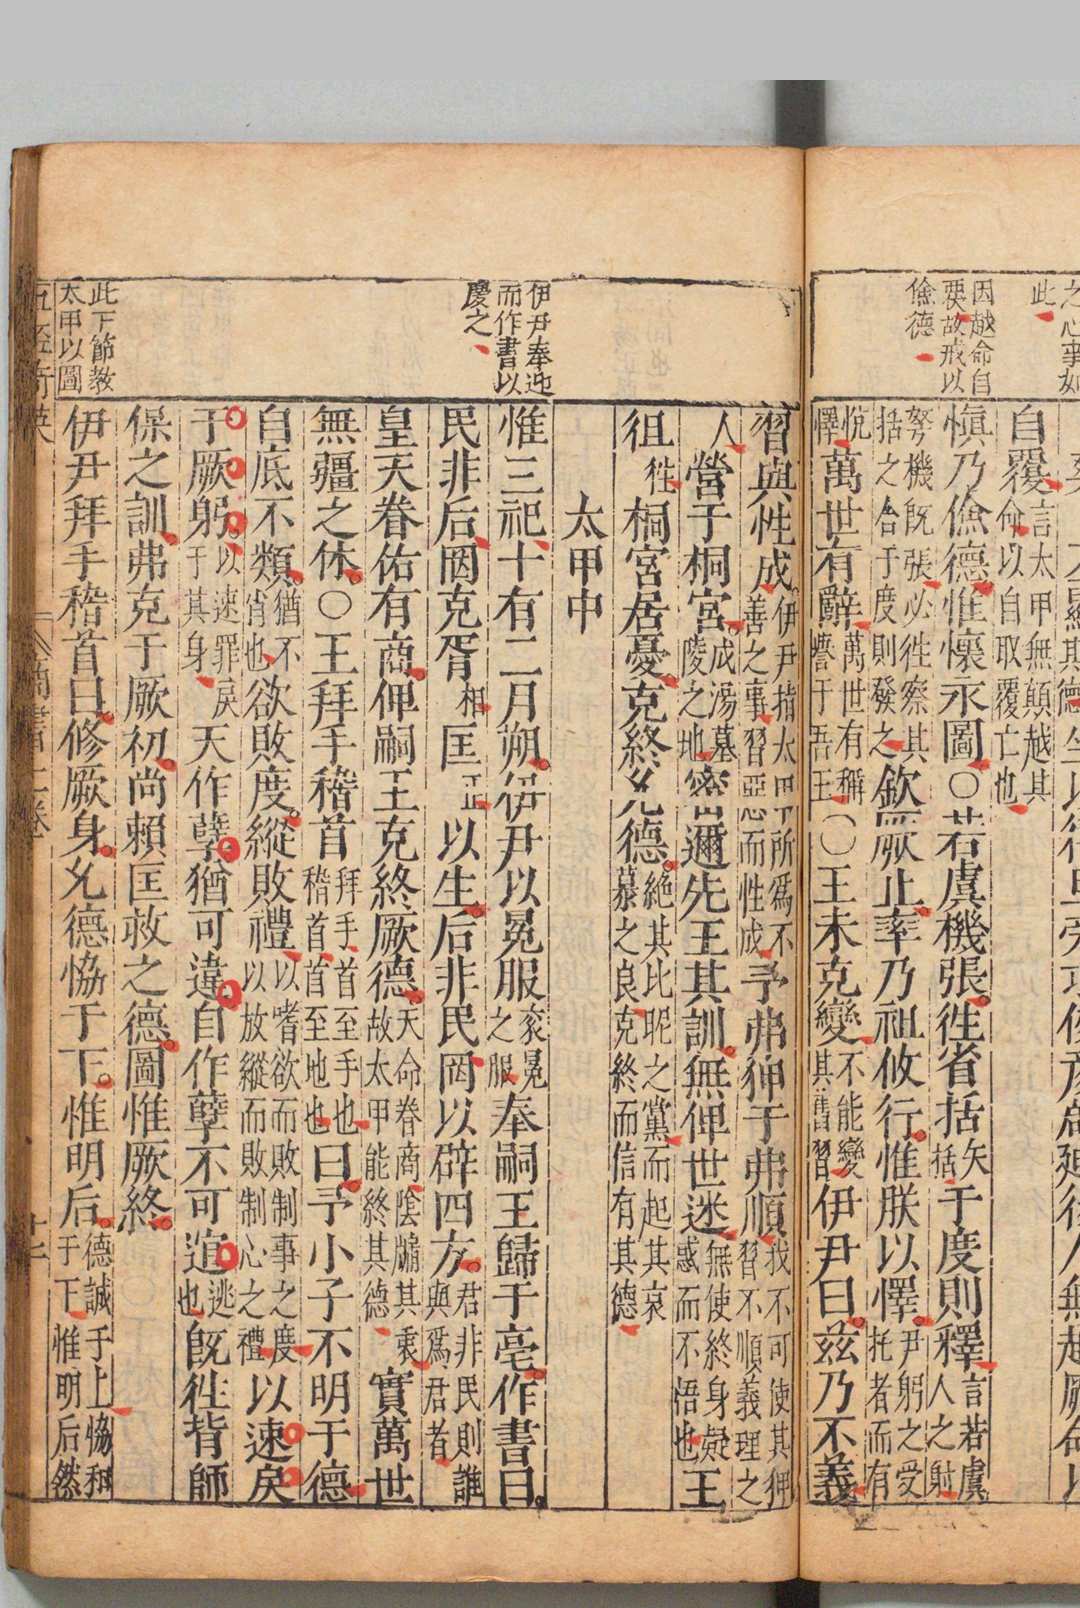 之心事如
此
因越命自
要故戒以
儉德
自覆言太甲無顛越其命以自取覆亡也
慎乃儉德惟懷永圖○若虞機張往省括矢括于度則釋言若虞人之射
弩機旣張必徃察其括之合于度則發之欽厥止率乃祖攸行惟朕以懌尹躬之受托者而有
悅懌萬世有辭萬世有稱譽于吾王○王未克變不能變其舊習伊尹曰茲乃不義
習與性成伊尹指太甲所爲不善之事習惡而性成予弗狎于弗順我不可使其狎習不順義理之
人營于桐宮成湯墓陵之地密邇先王其訓無俾世迷無使終身疑惑而不悟也王
徂徃桐宮居憂克終允德絶其比昵之黨而起其哀慕之良克終而信有其德
太甲中
伊尹奉迎
而作書以
慶之
惟三祀十有二月朔伊尹以冕服袞冕之服奉嗣王歸于亳作書曰
民非后罔克胥相匡正以生后非民罔以辟四方君非民則誰與爲君者
皇天眷佑有商俾嗣王克終厥德天命眷商陰隲其衷故太甲能終其德實萬世
無疆之休○王拜手稽首拜手首至手也稽首首至地也曰予小子不明于德
自底不類猶不肖也欲敗度縱敗禮以嗜欲而敗制事之度以放縱而敗制心之禮以速戾
于厥躬以速罪戾于其身天作孽猶可違自作孽不可逭逃也旣徃背師
保之訓弗克于厥初尚賴匡救之德圖惟厥終
此下節教
太甲以圖
伊尹拜手稽首曰修厥身允德恊于下惟明后德誠于上恊和于下惟明后然